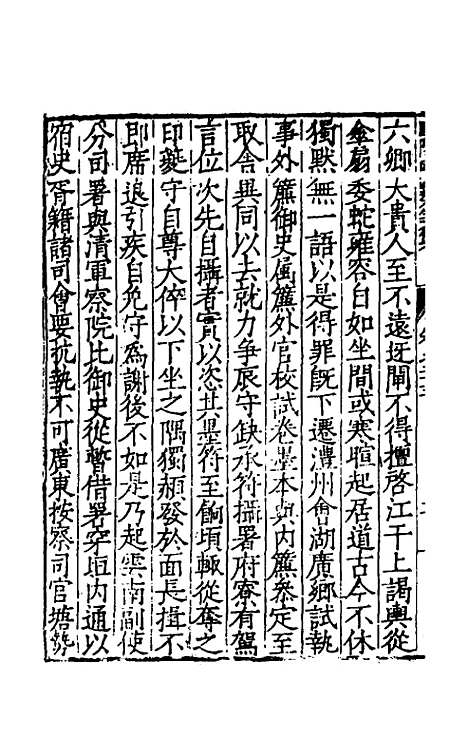 六卿大貴人至不遠迓閘不得擅啓江干上謁輿從
傘扇委蛇雍容自如坐間或寒暄起居道古今不休
獨默無一語以是得罪旣下遷澧州會湖廣鄉試執
事外簾御史属簾外官校試卷墨本與内簾叅定至
取舍異同以去就力争辰守缺承符攝署府寮有駕
言位次先自攝者實以恣其墨符至餉頃輙從奪之
印夔守自尊大倅以下坐之隅獨頳發於面長揖不
即席退引疾自免守爲謝後不如是乃起雲南副使
分司署與清軍察院比御史從暫借署穿垣内通以
宿史胥籍諸司會要抗執不可廣東按察司官塘